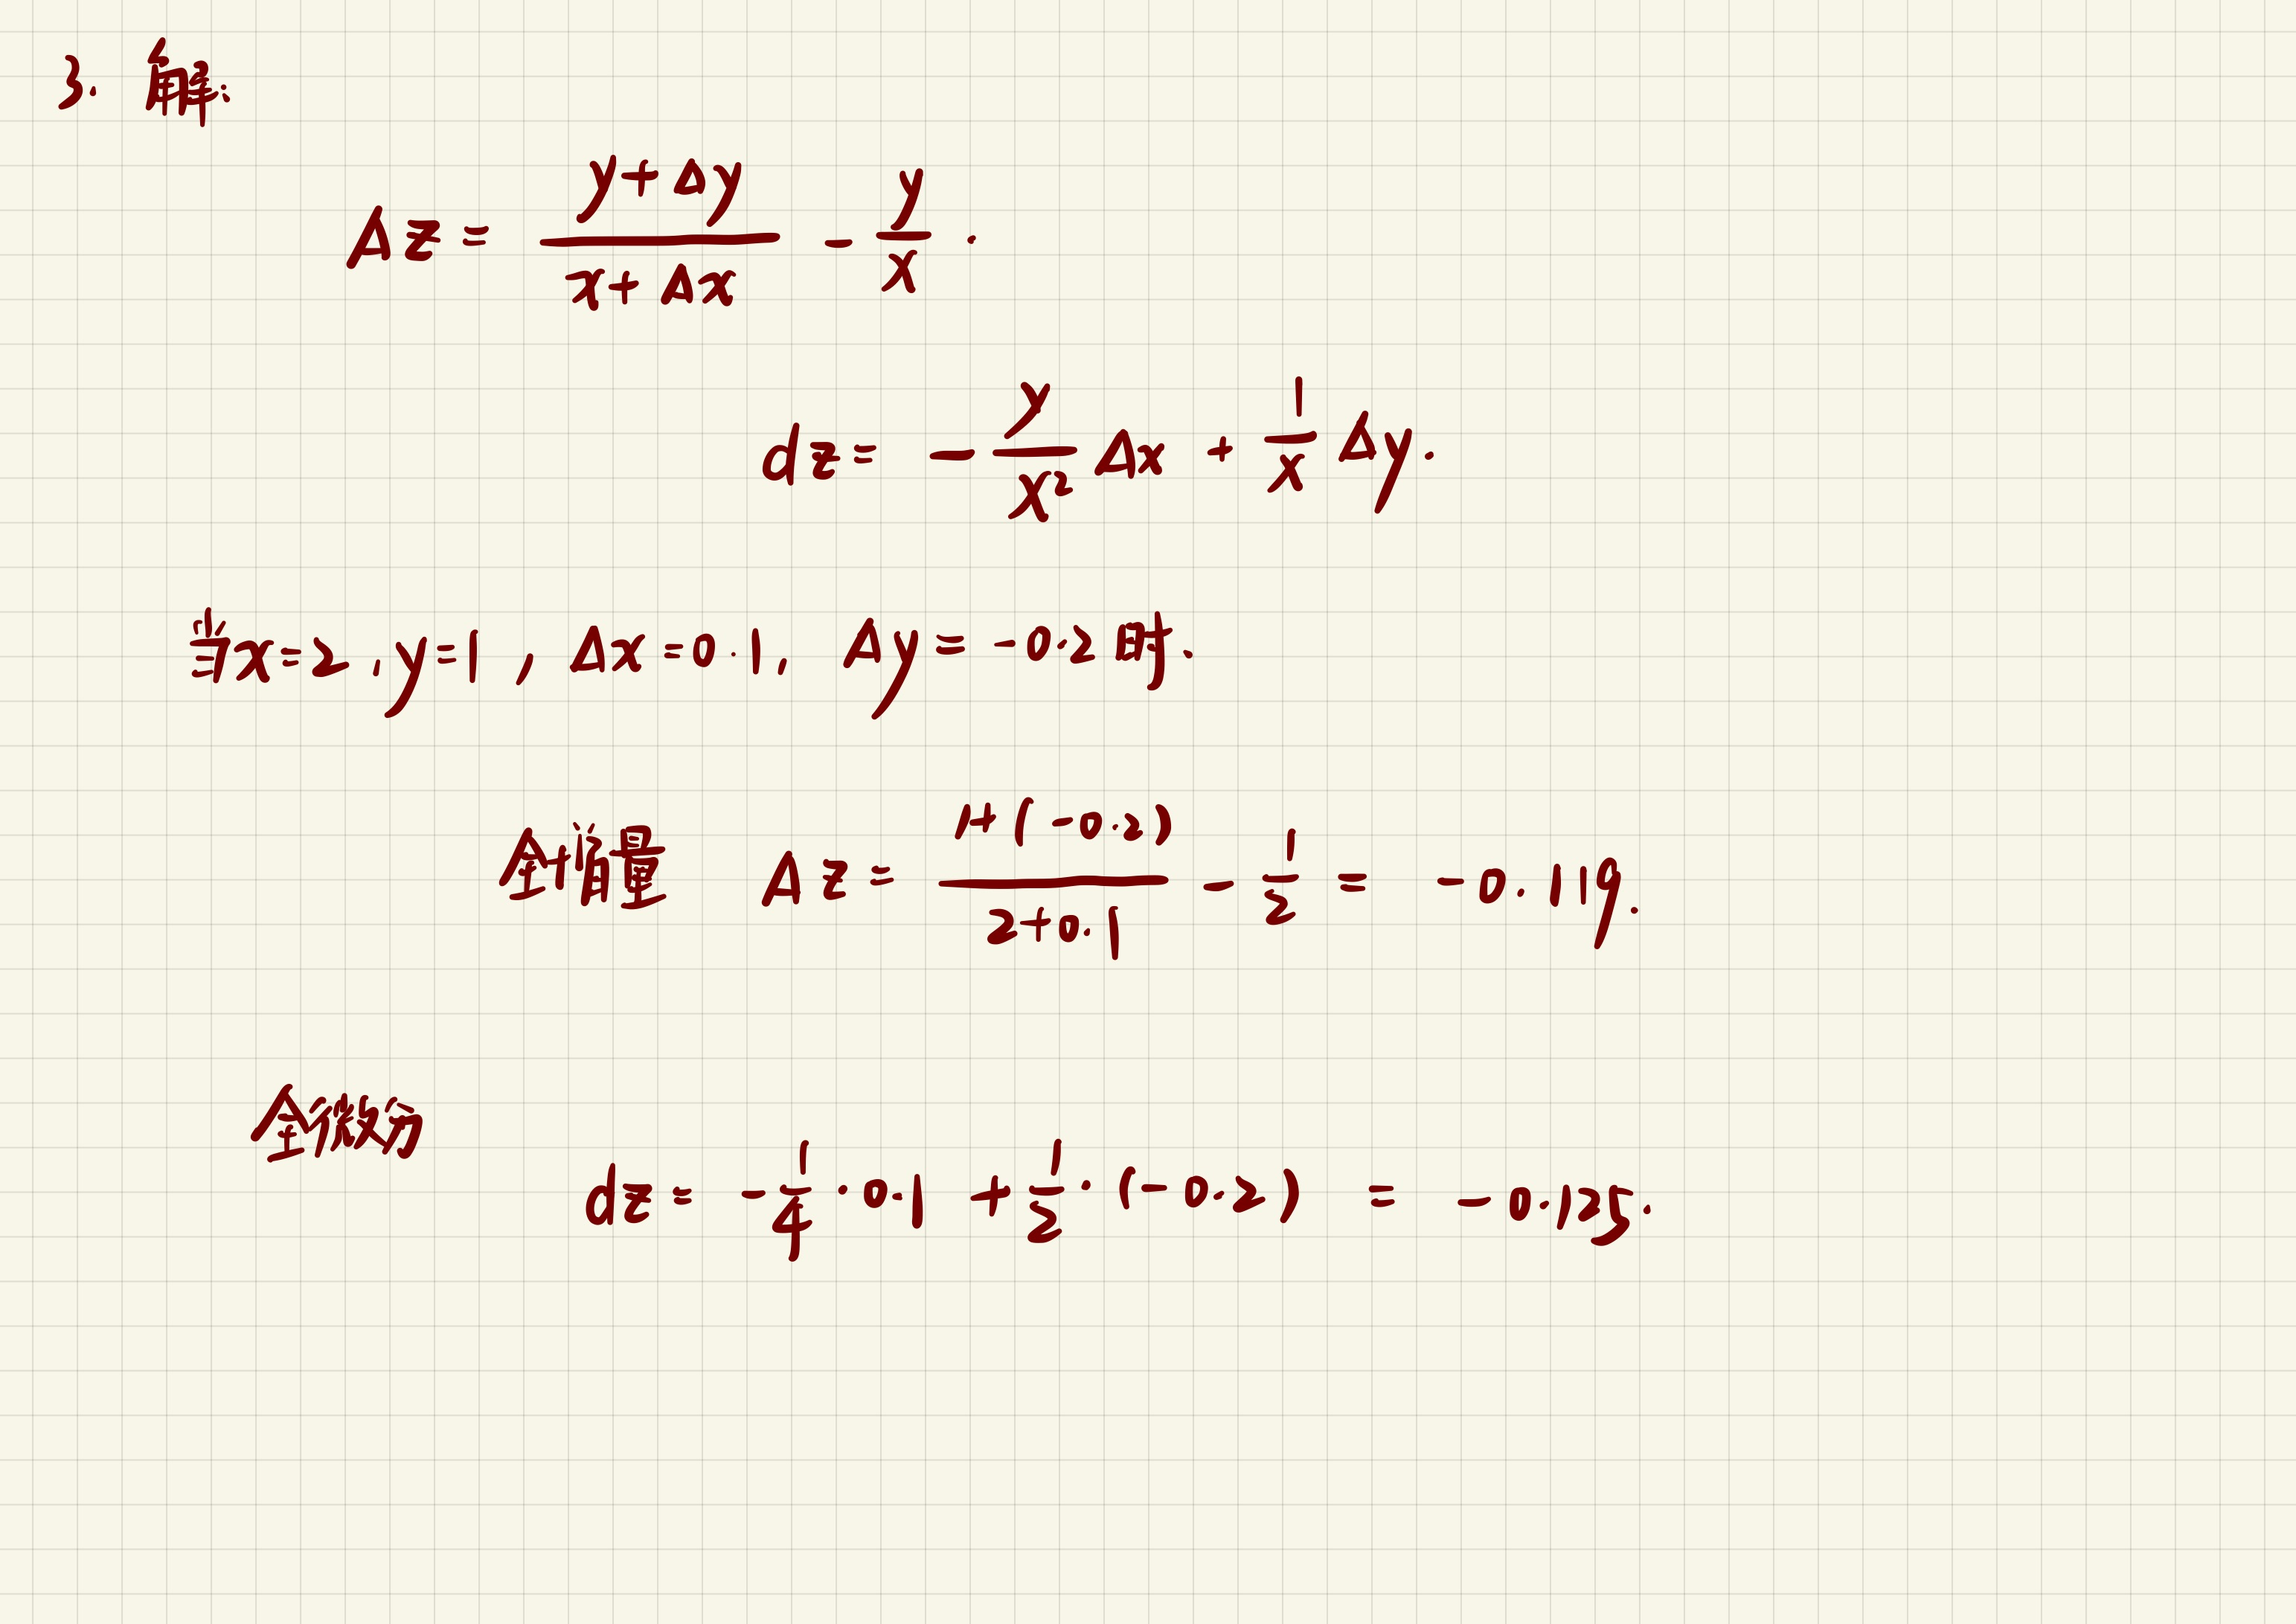 3. 解:
Δz = \frac{y+Δy}{x+Δx} - \frac{y}{x}.
dz = -\frac{y}{x^2}Δx + \frac{1}{x}Δy.
当x=2, y=1, Δx=0.1, Δy=-0.2时.
全增量 Δz = \frac{1+(-0.2)}{2+0.1} - \frac{1}{2} = -0.119.
全微分
dz = -\frac{1}{4}·0.1 + \frac{1}{2}·(-0.2) = -0.125.